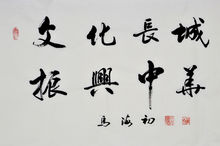 文化長城
振興中華
馬海初